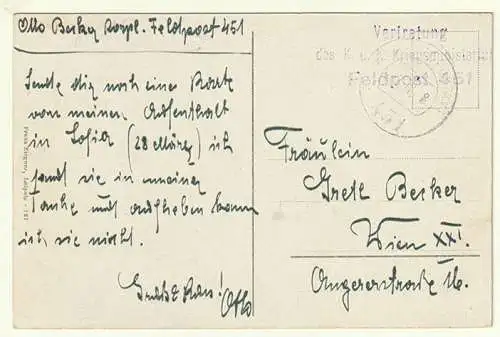 Otto Becker Korpl. Feldpost 451
Sende dir noch eine Karte
von meinem Aufenthalt
in Sofia (28 März) ich
fand sie in meiner
und aufheben kann
ich sie nicht.
Gruß & Kuss! Otto
Vertretung
des K. u. k. Kriegsministeriums
Feldpost 451
Fräulein
Gretl Becker
Wien XXI.
Angererstraße 16.